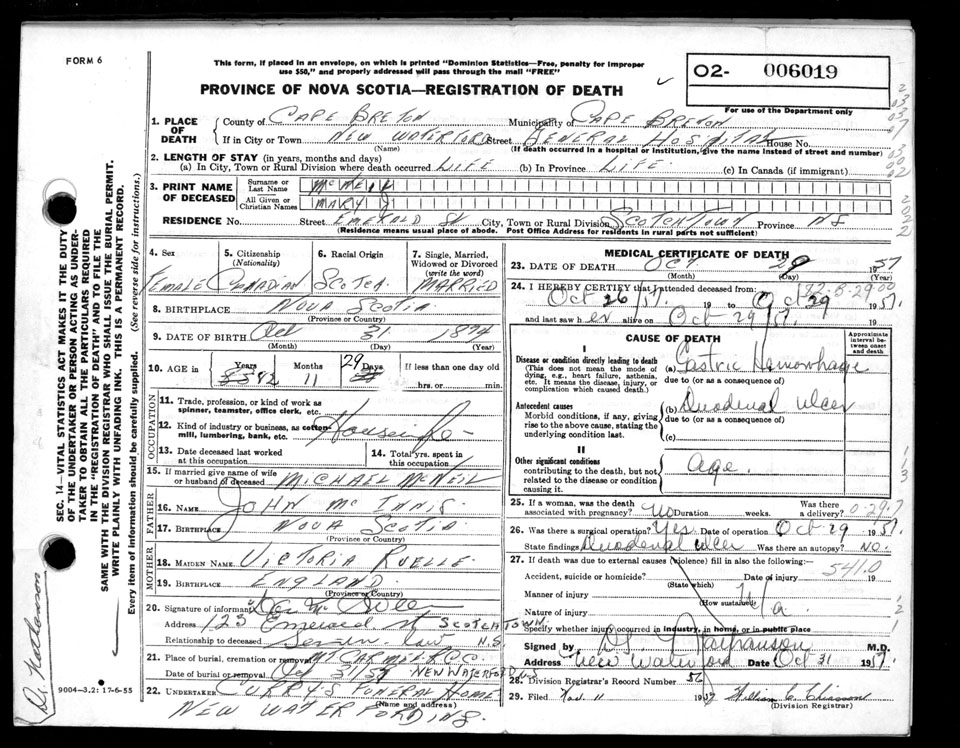 FORM 6
This form, if placed in an envelope, on which is printed "Dominion Statistics—Free, penalty for improper
use $50," and properly addressed will pass through the mail "FREE"
O2- 006019
PROVINCE OF NOVA SCOTIA—REGISTRATION OF DEATH
For use of the Department only
1. PLACE OF DEATH
County of CAPE BRETON Municipality of CAPE BRETON
If in City or Town NEW WATERFORD Street GENERAL HOSPITAL House No.
(Name) (If death occurred in a hospital or institution, give the name instead of street and number)
2. LENGTH OF STAY (in years, months and days)
(a) In City, Town or Rural Division where death occurred LIFE (b) In Province LIFE. (c) In Canada (if immigrant)
3. PRINT NAME OF DECEASED
Surname or Last Name McNEIL
All Given or Christian Names MARY J
RESIDENCE No. Street EMERALD ST City, Town or Rural Division SCOTCHTOWN Province NS
(Residence means usual place of abode. Post Office Address for residents in rural parts not sufficient)
4. Sex 5. Citizenship (Nationality) 6. Racial Origin 7. Single, Married, Widowed or Divorced (write the word)
FEMALE CANADIAN SCOTCH MARRIED
8. BIRTHPLACE NOVA SCOTIA
(Province or Country)
9. DATE OF BIRTH Oct 31 1874
(Month) (Day) (Year)
10. AGE in Years Months Days If less than one day old
82 11 29 hrs. or min.
OCCUPATION
11. Trade, profession, or kind of work as spinner, teamster, office clerk, etc.
12. Kind of industry or business, as cotton-mill, lumbering, bank, etc. Housewife
13. Date deceased last worked at this occupation 14. Total yrs. spent in this occupation
15. If married give name of wife or husband of deceased MICHAEL McNEIL
FATHER
16. NAME JOHN McINNIS
17. BIRTHPLACE NOVA SCOTIA
(Province or Country)
MOTHER
18. MAIDEN NAME VICTORIA RUELLE
19. BIRTHPLACE ENGLAND
(Province or Country)
20. Signature of informant
Address 123 Emerald St SCOTCHTOWN
Relationship to deceased Son in law N.S
21. Place of burial, cremation or removal MT CARMEL R.C.
Date of burial or removal Oct 31/57 NEW WATERFORD
22. UNDERTAKER CURRY'S FUNERAL HOME
(Name and address)
NEW WATERFORD N.S.
MEDICAL CERTIFICATE OF DEATH
23. DATE OF DEATH Oct 29 1957
(Month) (Day)
24. I HEREBY CERTIFY that I attended deceased from:
Oct 26/57 19 to Oct 29 1957
and last saw her alive on Oct 29/57. 19
CAUSE OF DEATH
Approximate interval between onset and death
I
Disease or condition directly leading to death
(This does not mean the mode of dying, e.g., heart failure, asthenia, etc. It means the disease, injury, or complication which caused death.)
(a) Gastric Hemorrhage
due to (or as consequence of)
Antecedent causes
Morbid conditions, if any, giving rise to the above cause, stating the underlying condition last.
(b) Duodenal ulcer
due to (or as a consequence of)
(c)
II
Other significant conditions
contributing to the death, but not related to the disease or condition causing it.
age.
25. If a woman, was the death associated with pregnancy? No Duration weeks. Was there a delivery?
26. Was there a surgical operation? Yes Date of operation Oct 29 1957
State findings Duodenal ulcer Was there an autopsy? No.
27. If death was due to external causes (violence) fill in also the following:— 541.0
Accident, suicide or homicide? Date of injury 19
(State which)
Manner of injury
(How sustained)
Nature of injury
Specify whether injury occurred in industry, in home, or in public place
Signed by Nathanson M.D.
Address New Waterford Date Oct 31 1957.
28. Division Registrar's Record No. 56
29. Filed Nov 11 1957 William C. Chiasson
(Division Registrar)
SEC. 14—VITAL STATISTICS ACT MAKES IT THE DUTY
OF THE UNDERTAKER OR PERSON ACTING AS UNDER-
TAKER TO OBTAIN ALL THE PARTICULARS REQUIRED
IN THE "REGISTRATION OF DEATH" AND TO FILE THE
SAME WITH THE DIVISION REGISTRAR WHO SHALL ISSUE THE BURIAL PERMIT.
WRITE PLAINLY WITH UNFADING INK. THIS IS A PERMANENT RECORD.
Every item of information should be carefully supplied. (See reverse side for instructions.)
Dr. Nathanson
9004-3.2: 17-6-55